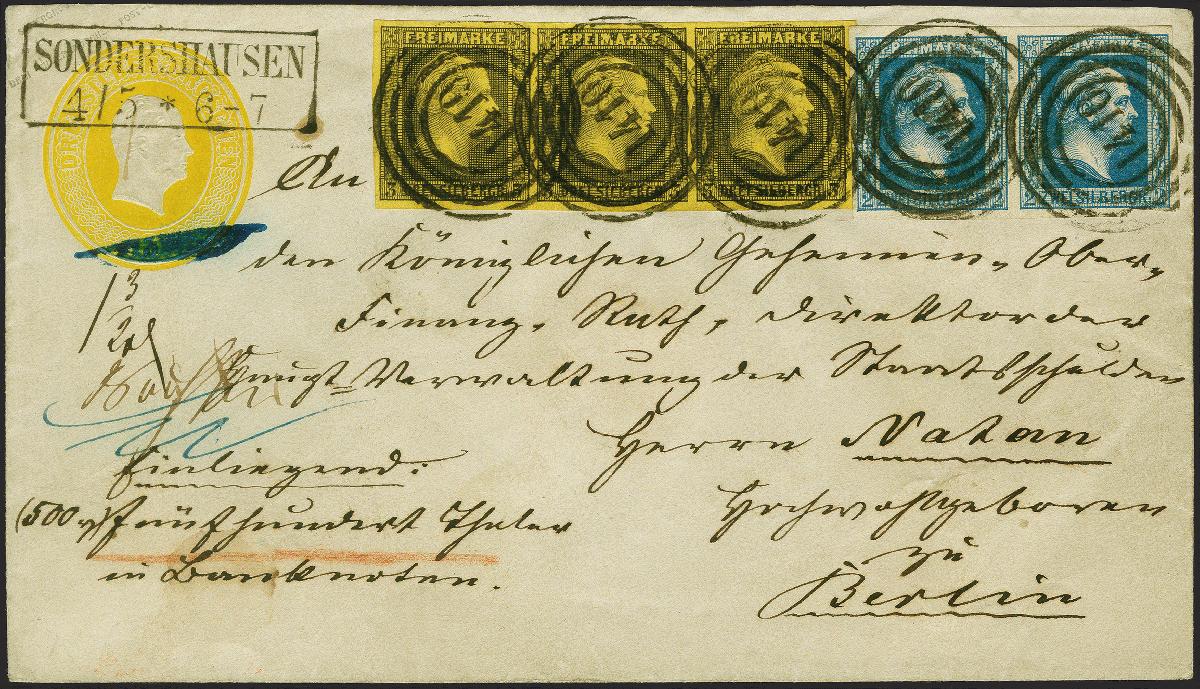 SONDERSHAUSEN
4/5 * 6-7
FREIMARKE FREIMARKE FREIMARKE
1410 1410 1410 1410 1410
3 3 3
An
den Königlichen Geheimen Ober-
Finanz-Rath, Direktor der
Haupt-Verwaltung der Staatsschulden
Herrn Natan
Hochwohlgeboren
zu
Berlin
Einliegend:
(500 Fünfhundert Thaler
in Banknoten.